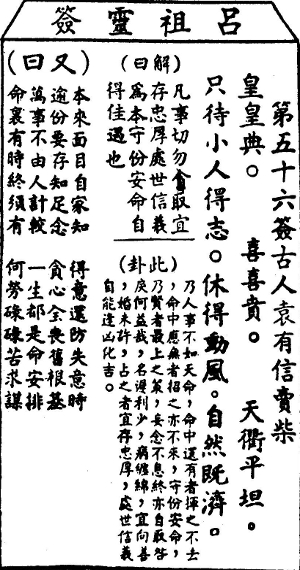 呂祖靈簽
第五十六簽古人袁有信賣柴
皇皇典。 喜喜賁。 天衢平坦。
只待小人得志。休得動風。自然既濟。
(解曰)
凡事切勿貪取宜
存忠厚處世信義
為本守份安命自
得佳遇也
(此卦)
乃人事不如天命,命中還有者揮之不去
,命中應無者招之亦不來,守份安命,
乃賢者最上之策,妄念不息終亦自取咎
戾何益哉,名淺利少,病纏綿,宜向善
,婚未許,占之者宜存忠厚,處世信義
自能逢凶化吉。
(又曰)
本來面目自家知 得意還防失意時
逾份要存知足念 貪心全喪舊根基
萬事不由人計較 一生都是命安排
命裏有時終須有 何勞碌碌苦求謀